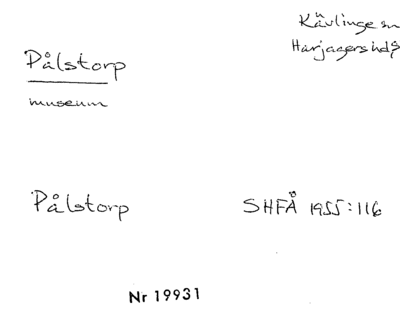 Kävlinge sn
Harjagers hd
Pålstorp
museum
Pålstorp
SHFÅ 1955:116
Nr 19931